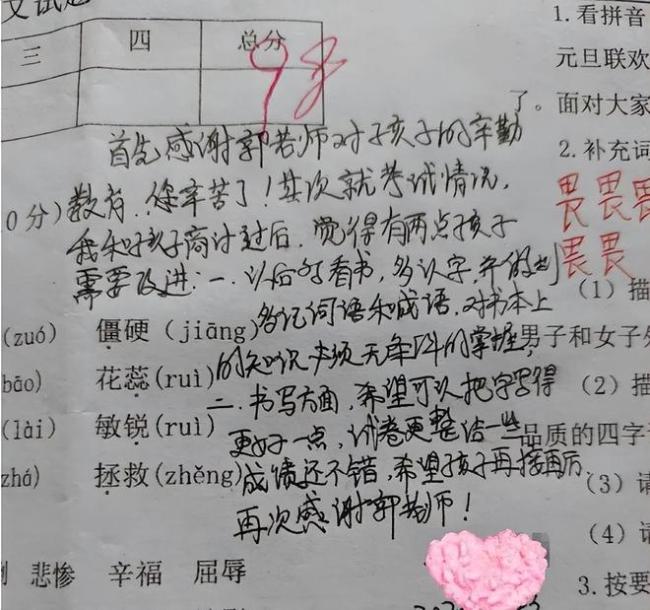 文试
三 四 总分
98
1.看拼音
元旦联欢
了。面对大家
2.补充词
畏畏畏
畏畏
(1)描
男子和女子
(2)描
品质的四字
(3)请
(4)请
3.按要
首先感谢郭老师对孩子的辛勤
0分)教育,您辛苦了!其次就考试情况,
我和孩子商讨过后,觉得有两点孩子
需要改进:一.以后多看书,多认字,并做到
多记词语和成语,对书本上
的知识必须无条件的掌握,
二.书写方面,希望可以把字写得
更好一点,试卷更整洁一些,
成绩还不错,希望孩子再接再厉,
再次感谢郭老师!
(zuó) 僵硬(jiāng)
bāo) 花蕊(ruì)
(lài) 敏锐(ruì)
zhá) 拯救(zhěng)
悲惨 辛福 屈辱